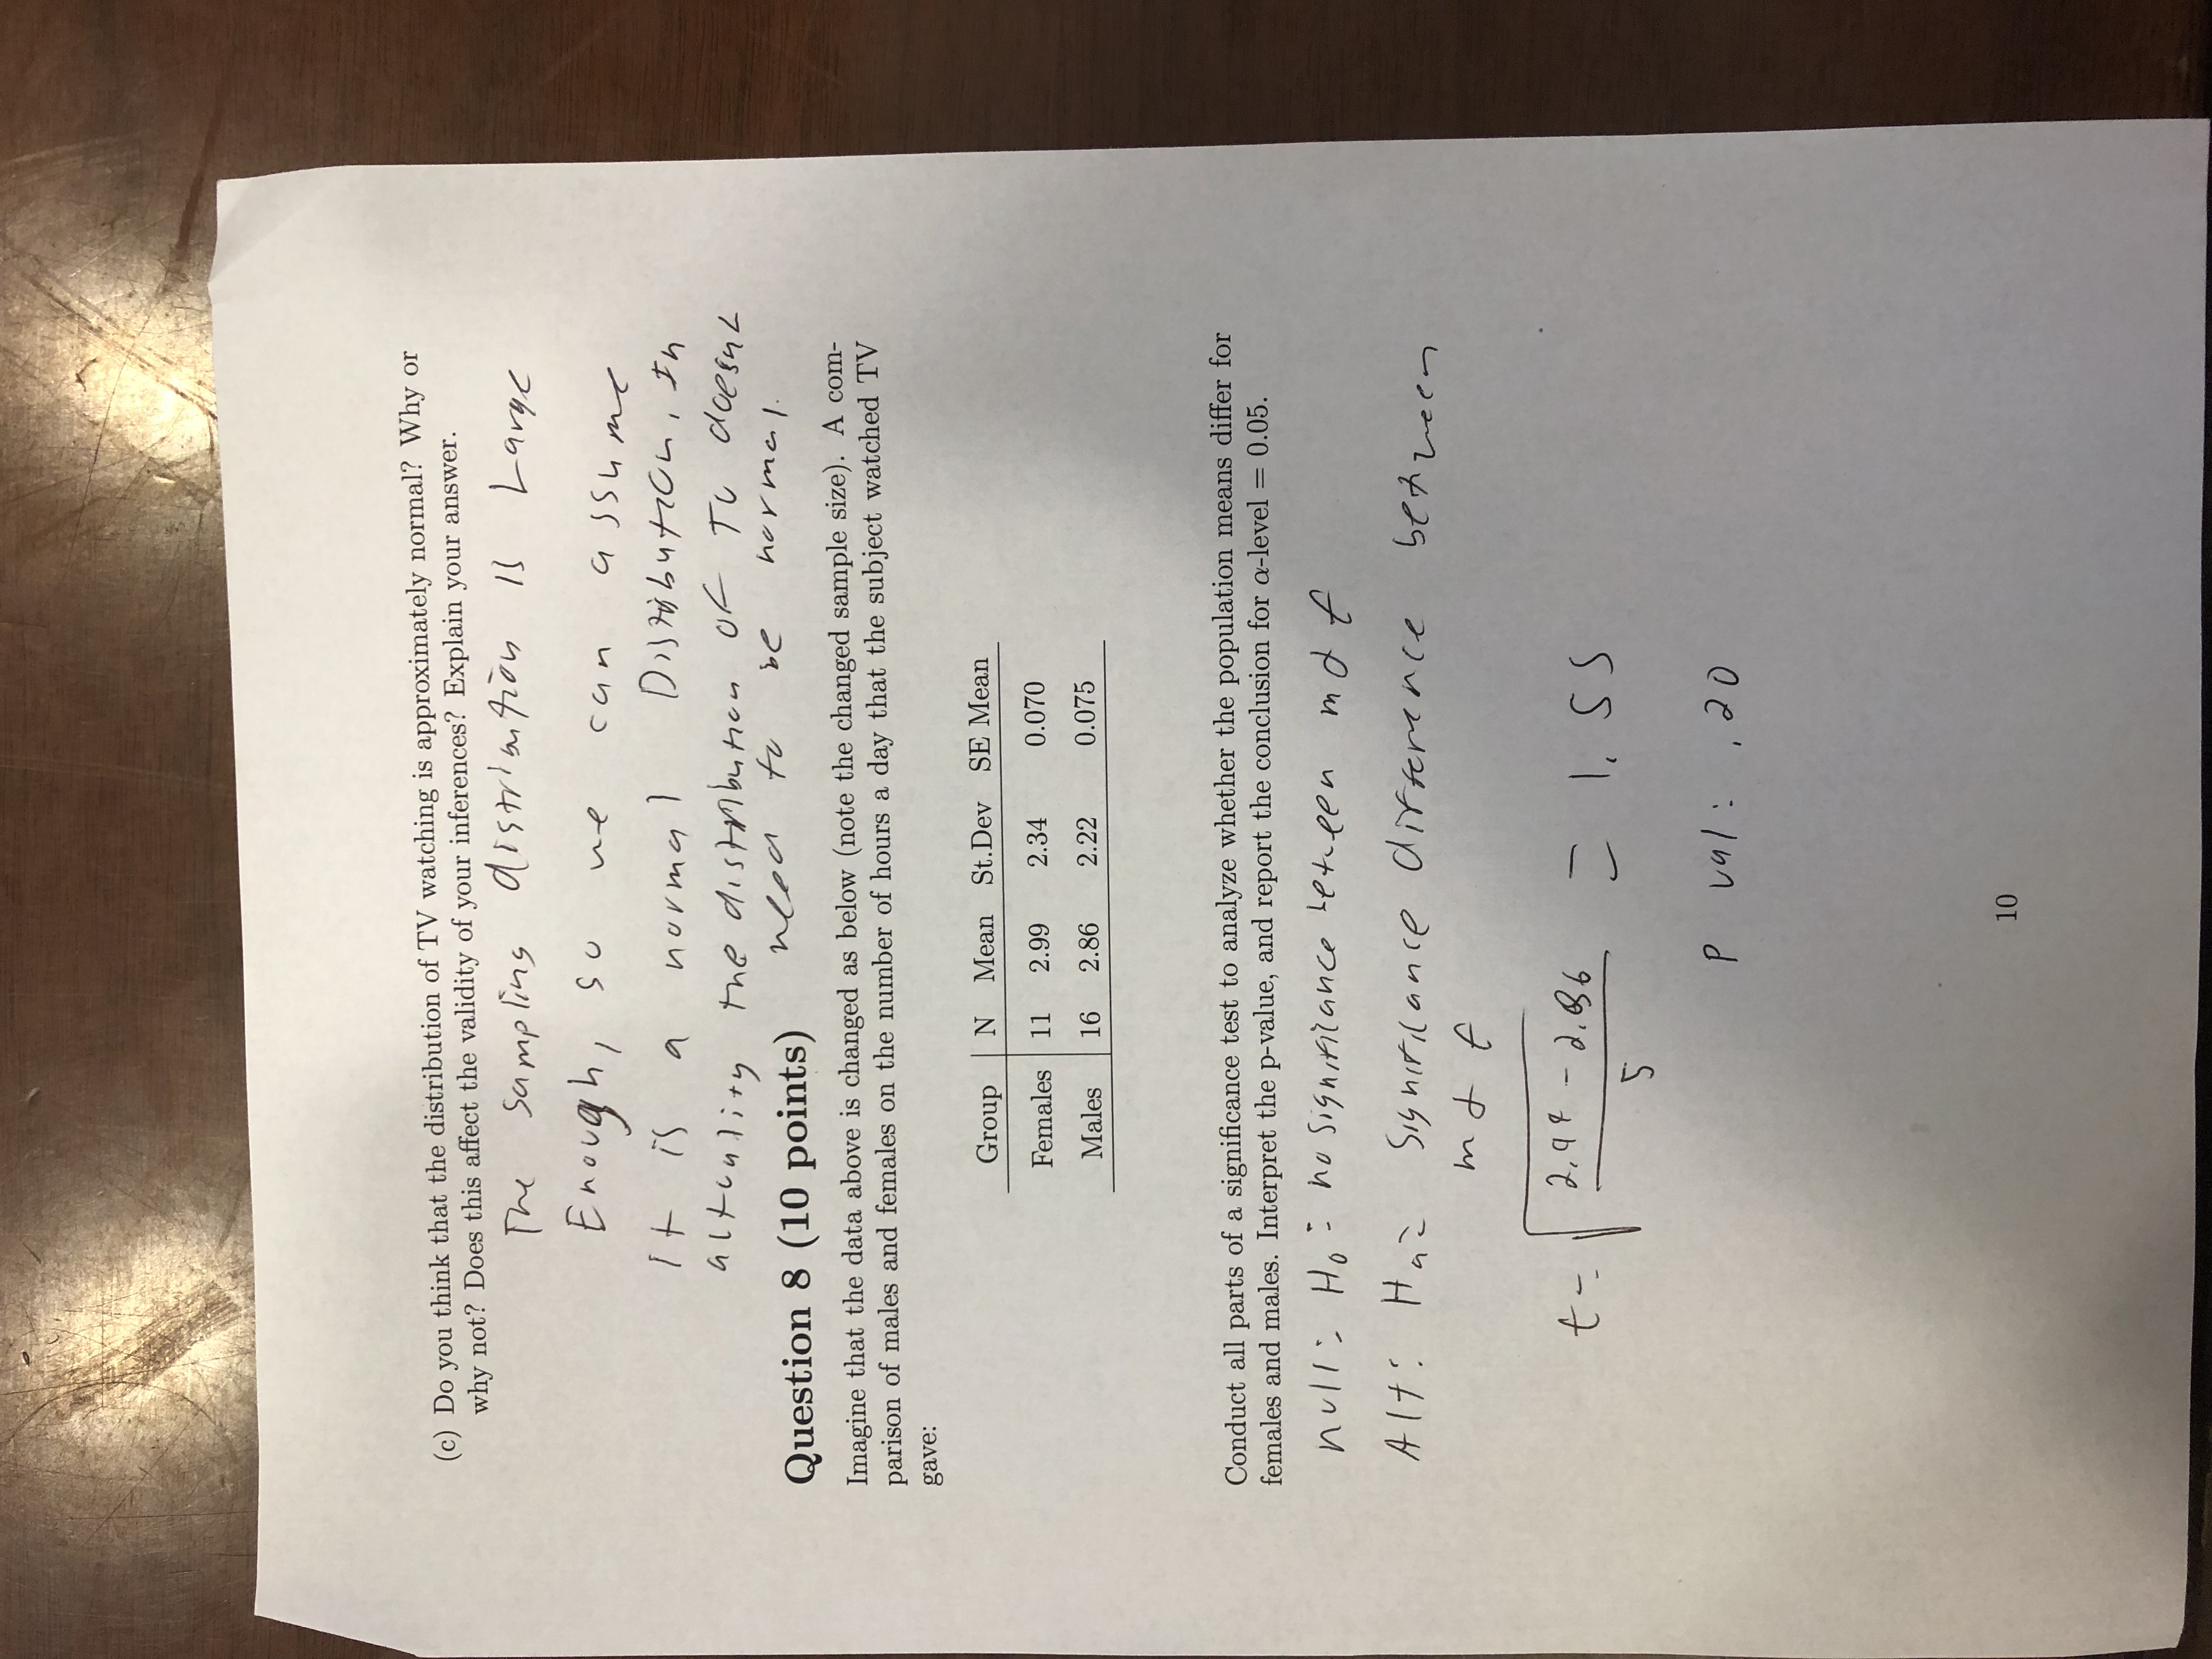 (c) Do you think that the distribution of TV watching is approximately normal? Why or
why not? Does this affect the validity of your inferences? Explain your answer.
The sampling distribution is Large
Enough, so we can assume
It is a normal Distribution, In
altuality the distribution of TV doesnt
need to be normal.
Question 8 (10 points)
Imagine that the data above is changed as below (note the changed sample size). A com-
parison of males and females on the number of hours a day that the subject watched TV
gave:
Group N Mean St.Dev SE Mean
Females 11 2.99 2.34 0.070
Males 16 2.86 2.22 0.075
Conduct all parts of a significance test to analyze whether the population means differ for
females and males. Interpret the p-value, and report the conclusion for α-level = 0.05.
null: H0: no significance between m d f
Alt: Ha: Significance difference between
m d f
t= √ 2.99 - 2.86 / 5 = 1.55
P val: .20
10